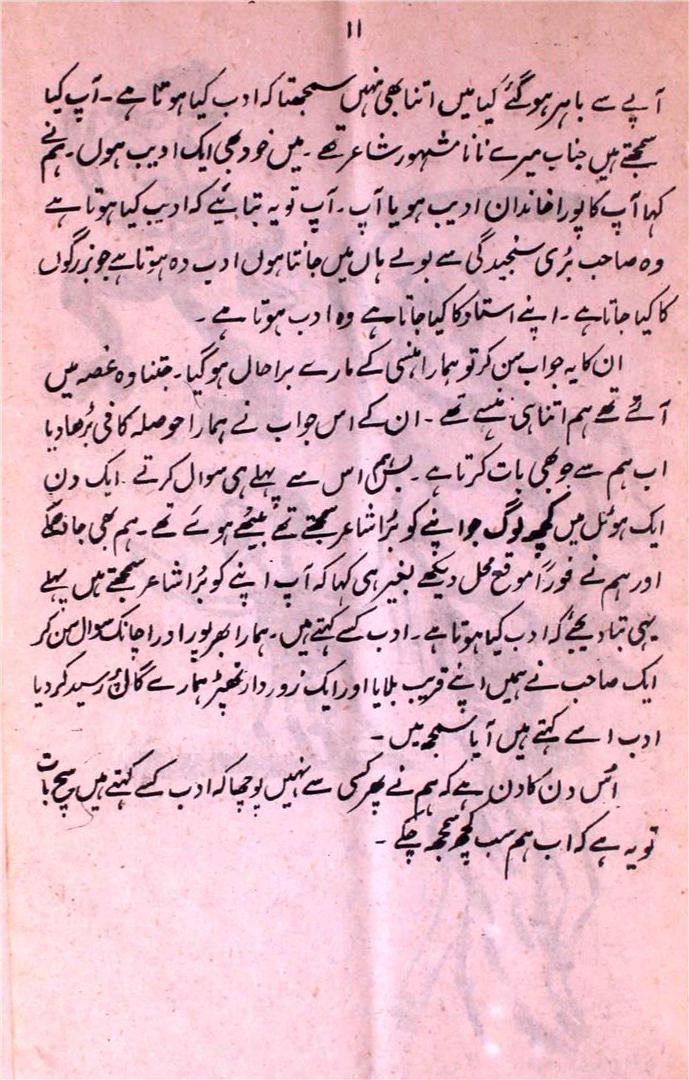 ۱۱
آپے سے باہر ہوگئے کیا میں اتنا بھی نہیں سمجھتا کہ ادب کیا ہوتا ہے۔ آپ کیا
سمجھتے ہیں جناب میرے نانا مشہور شاعر تھے۔ میں خود بھی ایک ادیب ہوں۔ ہم نے
کہا آپ کا پورا خاندان ادیب ہو یا آپ۔ آپ تو یہ بتائیے کہ ادیب کیا ہوتا ہے
وہ صاحب بڑی سنجیدگی سے بولے ہاں میں جانتا ہوں ادب وہ ہوتا ہے جو بزرگوں
کا کیا جاتا ہے۔ اپنے استاد کا کیا جاتا ہے وہ ادب ہوتا ہے۔
ان کا یہ جواب سن کر تو ہمارا ہنسی کے مارے برا حال ہوگیا۔ جتنا وہ غصہ میں
آئے تھے ہم اتنا ہی ہنسے تھے۔ ان کے اس جواب نے ہمارا حوصلہ کافی بڑھا دیا
اب ہم سے جو بھی بات کرتا ہے۔ بس ہم اس سے پہلے ہی سوال کرتے۔ ایک دن
ایک ہوٹل میں کچھ لوگ جو اپنے کو بڑا شاعر سمجھتے تھے بیٹھے ہوئے تھے۔ ہم بھی جا دھمکے
اور ہم نے فوراً موقع محل دیکھے بغیر ہی کہا کہ آپ اپنے کو بڑا شاعر سمجھتے ہیں پہلے
یہی بتا دیجئے کہ ادب کیا ہوتا ہے۔ ادب کسے کہتے ہیں۔ ہمارا بھرپور اور اچانک سوال سن کر
ایک صاحب نے ہمیں اپنے قریب بلایا اور ایک زوردار تھپڑ ہمارے گال پر رسید کر دیا
ادب اسے کہتے ہیں آیا سمجھ میں۔
اُس دن کا دن ہے کہ ہم نے پھر کسی سے نہیں پوچھا کہ ادب کسے کہتے ہیں سچ بات
تو یہ ہے کہ اب ہم سب کچھ سمجھ چکے۔